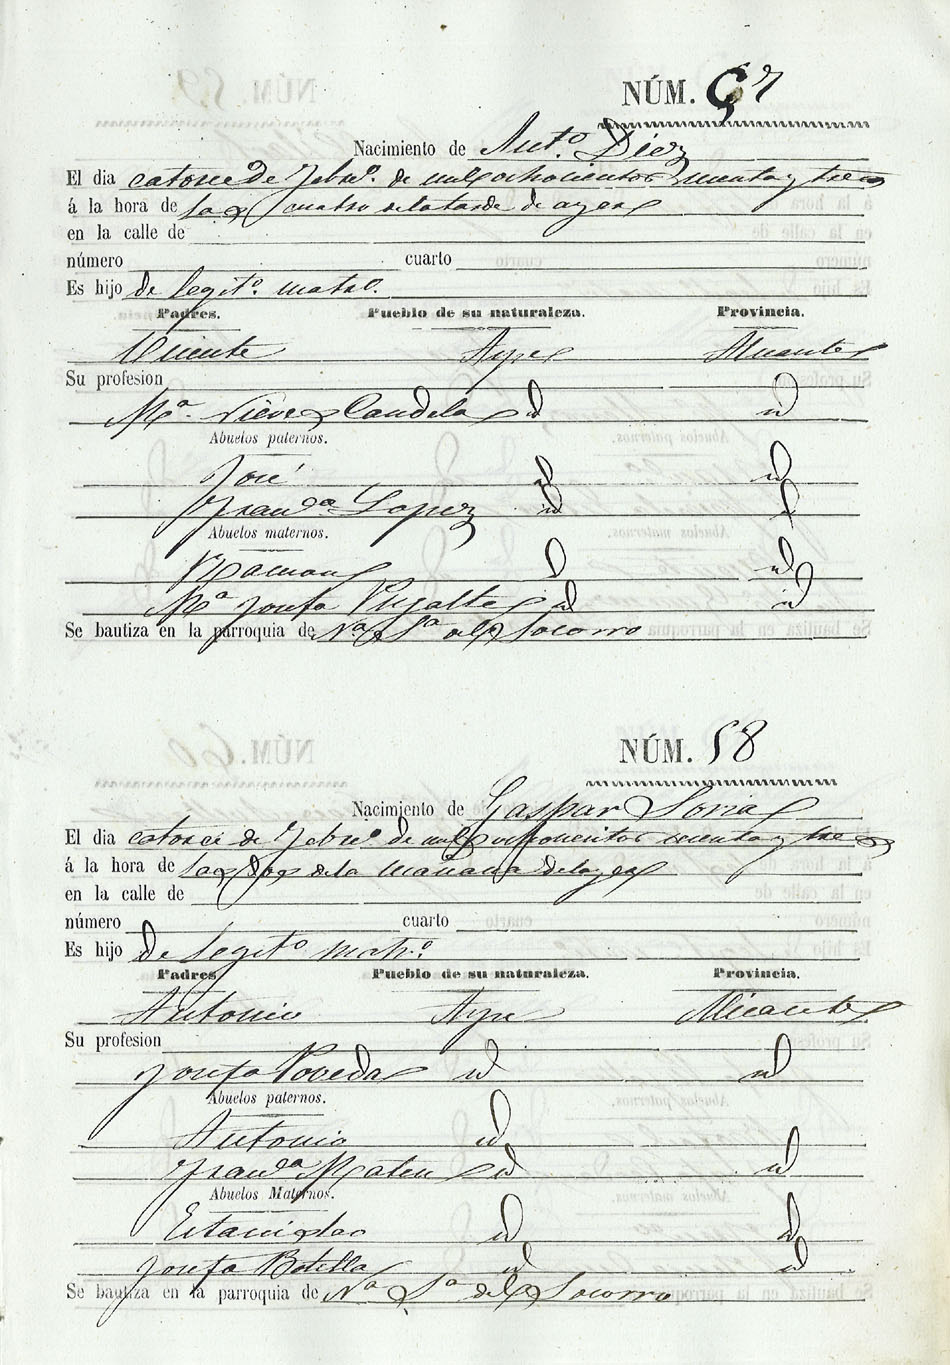 NÚM. 57
Nacimiento de Antº. Diez
El dia catorce de Febrº. de mil ochocientos setenta y tres
á la hora de las cuatro de la tarde de ayer
en la calle de
número cuarto
Es hijo de legitº. matrº.
Padres. Pueblo de su naturaleza. Provincia.
Vicente Aspe Alicante
Su profesion
Mª. Nieves Candela id id
Abuelos paternos.
José id id
Francª Lopez id id
Abuelos maternos.
Ramon id id
Mª Josefa id id
Se bautiza en la parroquia de Nª Sª del Socorro
NÚM. 58
Nacimiento de Gaspar Soria
El dia catorce de Febrº de mil ochocientos setenta y tres
á la hora de las dos de la mañana de ayer
en la calle de
número cuarto
Es hijo de legitº matrº.
Padres Pueblo de su naturaleza. Provincia.
Antonio Aspe Alicante
Su profesion
Josefa Poveda id id
Abuelos paternos.
Antonio id
Francª Mateu id id
Abuelos Maternos.
Estanislao id id
Josefa Botella id id
Se bautiza en la parroquia de Nª Sª del Socorro